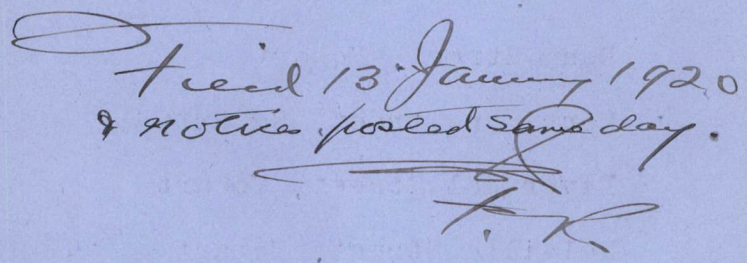 Filed 13 January 1920
& notices posted same day.
F. R.